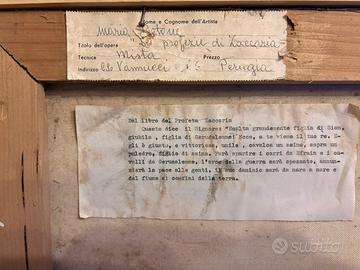 Nome e Cognome dell'Artista
Maria
Titolo dell'opere "Le profezie di Zaccaria"
Tecnica Mista Prezzo
Indirizzo C.so Vannucci Perugia
Dal libro del Profeta Zaccaria
Queste dice il Signore: "Esulta grandemente figlia di Sion,
giubila, figlia di Gerusalemme: Ecco, a te viene il tuo re. E-
gli è giusto, e vittorioso, umile, cavalca un asino, sopra un
puledro, figlio di asina. Farà sparire i carri da Efraim e i ca-
valli da Gerusalemme, l'arco della guerra sarà spezzato, annun-
zierà la pace alle genti, il suo dominio sarà da mare a mare e
dal fiume ai confini della terra.
subito